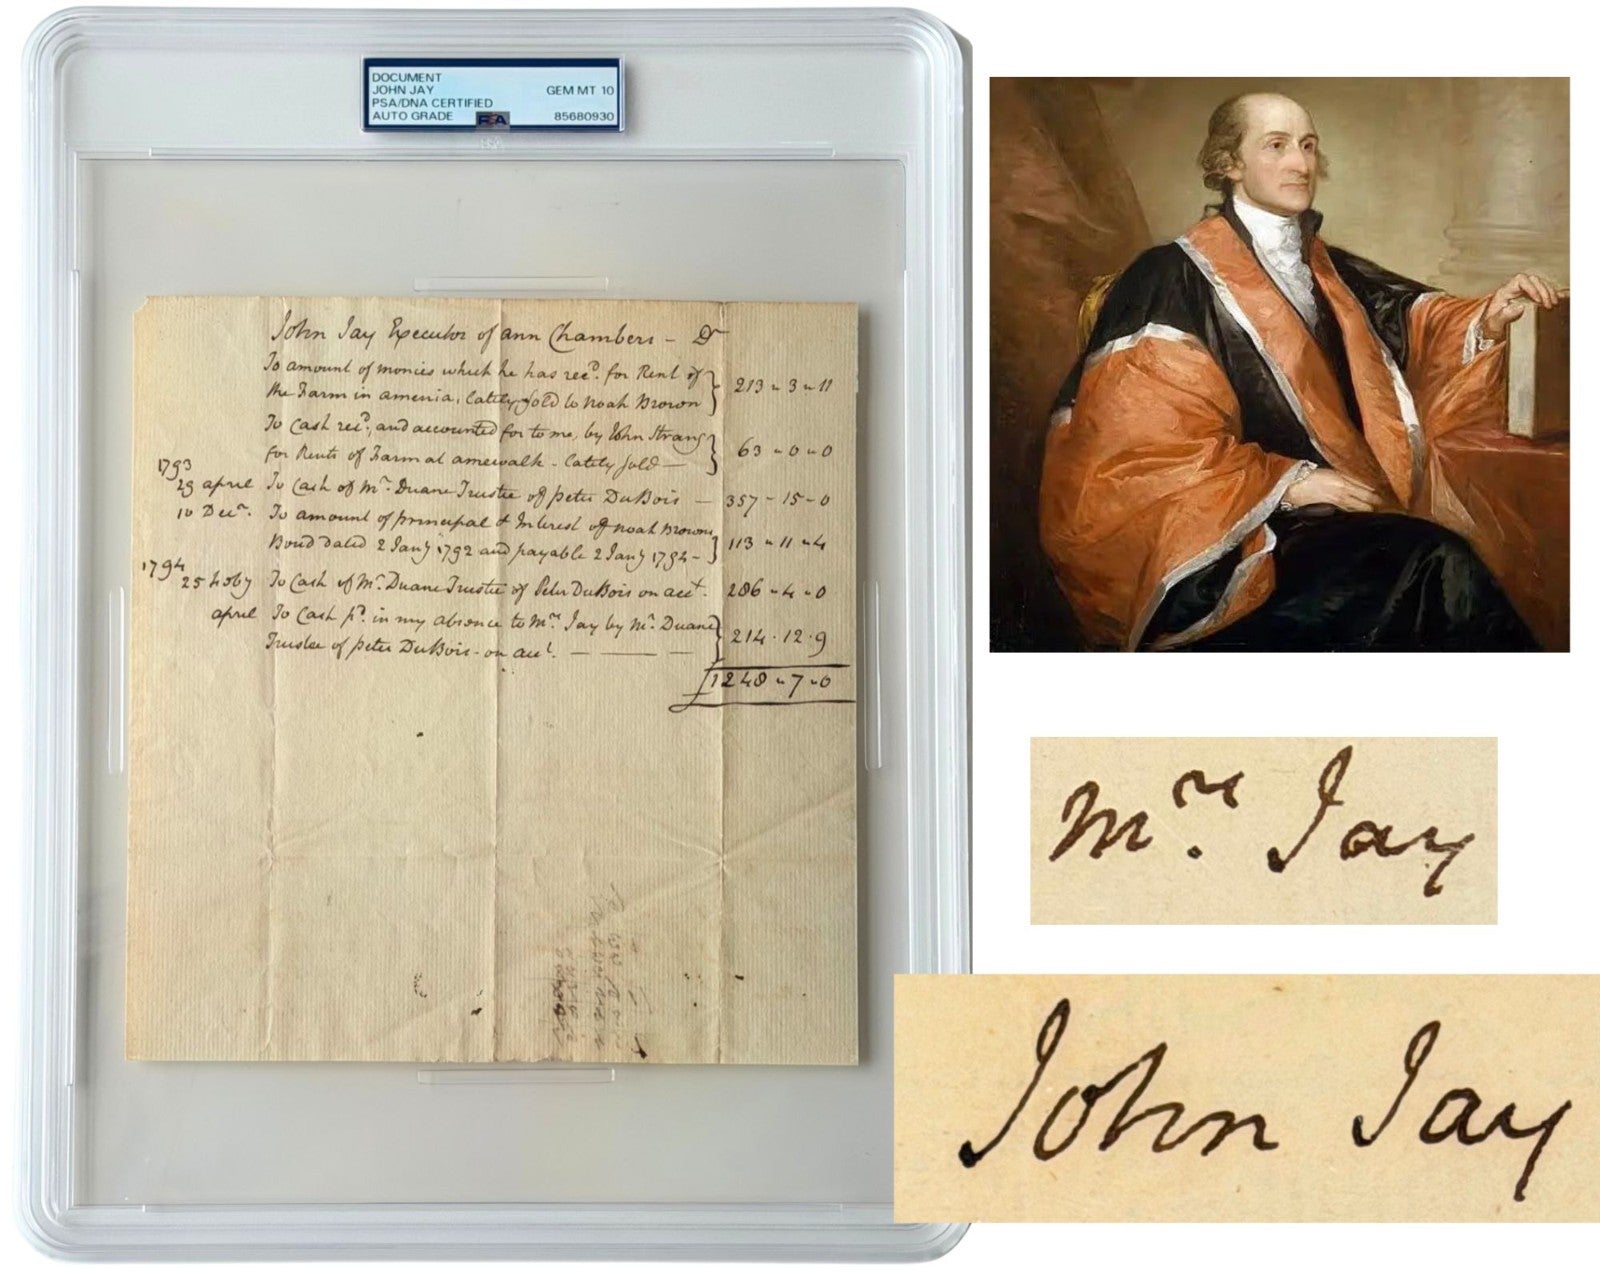 DOCUMENT
JOHN JAY GEM MT 10
PSA/DNA CERTIFIED
AUTO GRADE PSA 85680930
John Jay Executor of ann Chambers – Dr
To amount of monies which he has recd. for Rent of
the Farm in amenia, lately sold to Noah Brown } 213 " 3 " 11
To Cash recd., and accounted for to me, by John Strang
for Rents of Farm at amewalk - lately sold — } 63 " 0 " 0
1793
29 april To Cash of Mr. Duane Trustee of Peter DuBois — 357 - 15 - 0
10 Decr. To amount of principal & Interest of Noah Browns
Bond dated 2 Jany 1792 and payable 2 Jany 1794 - } 113 " 11 " 4
1794
25 To Cash of Mr. Duane Trustee of Peter DuBois on acct. 286 - 4 - 0
april To Cash pd. in my absence to Mrs. Jay by Mr. Duane
Trustee of Peter DuBois - on acct. — — — } 214 . 12 . 9
1248 " 7 " 0
Mrs. Jay
John Jay